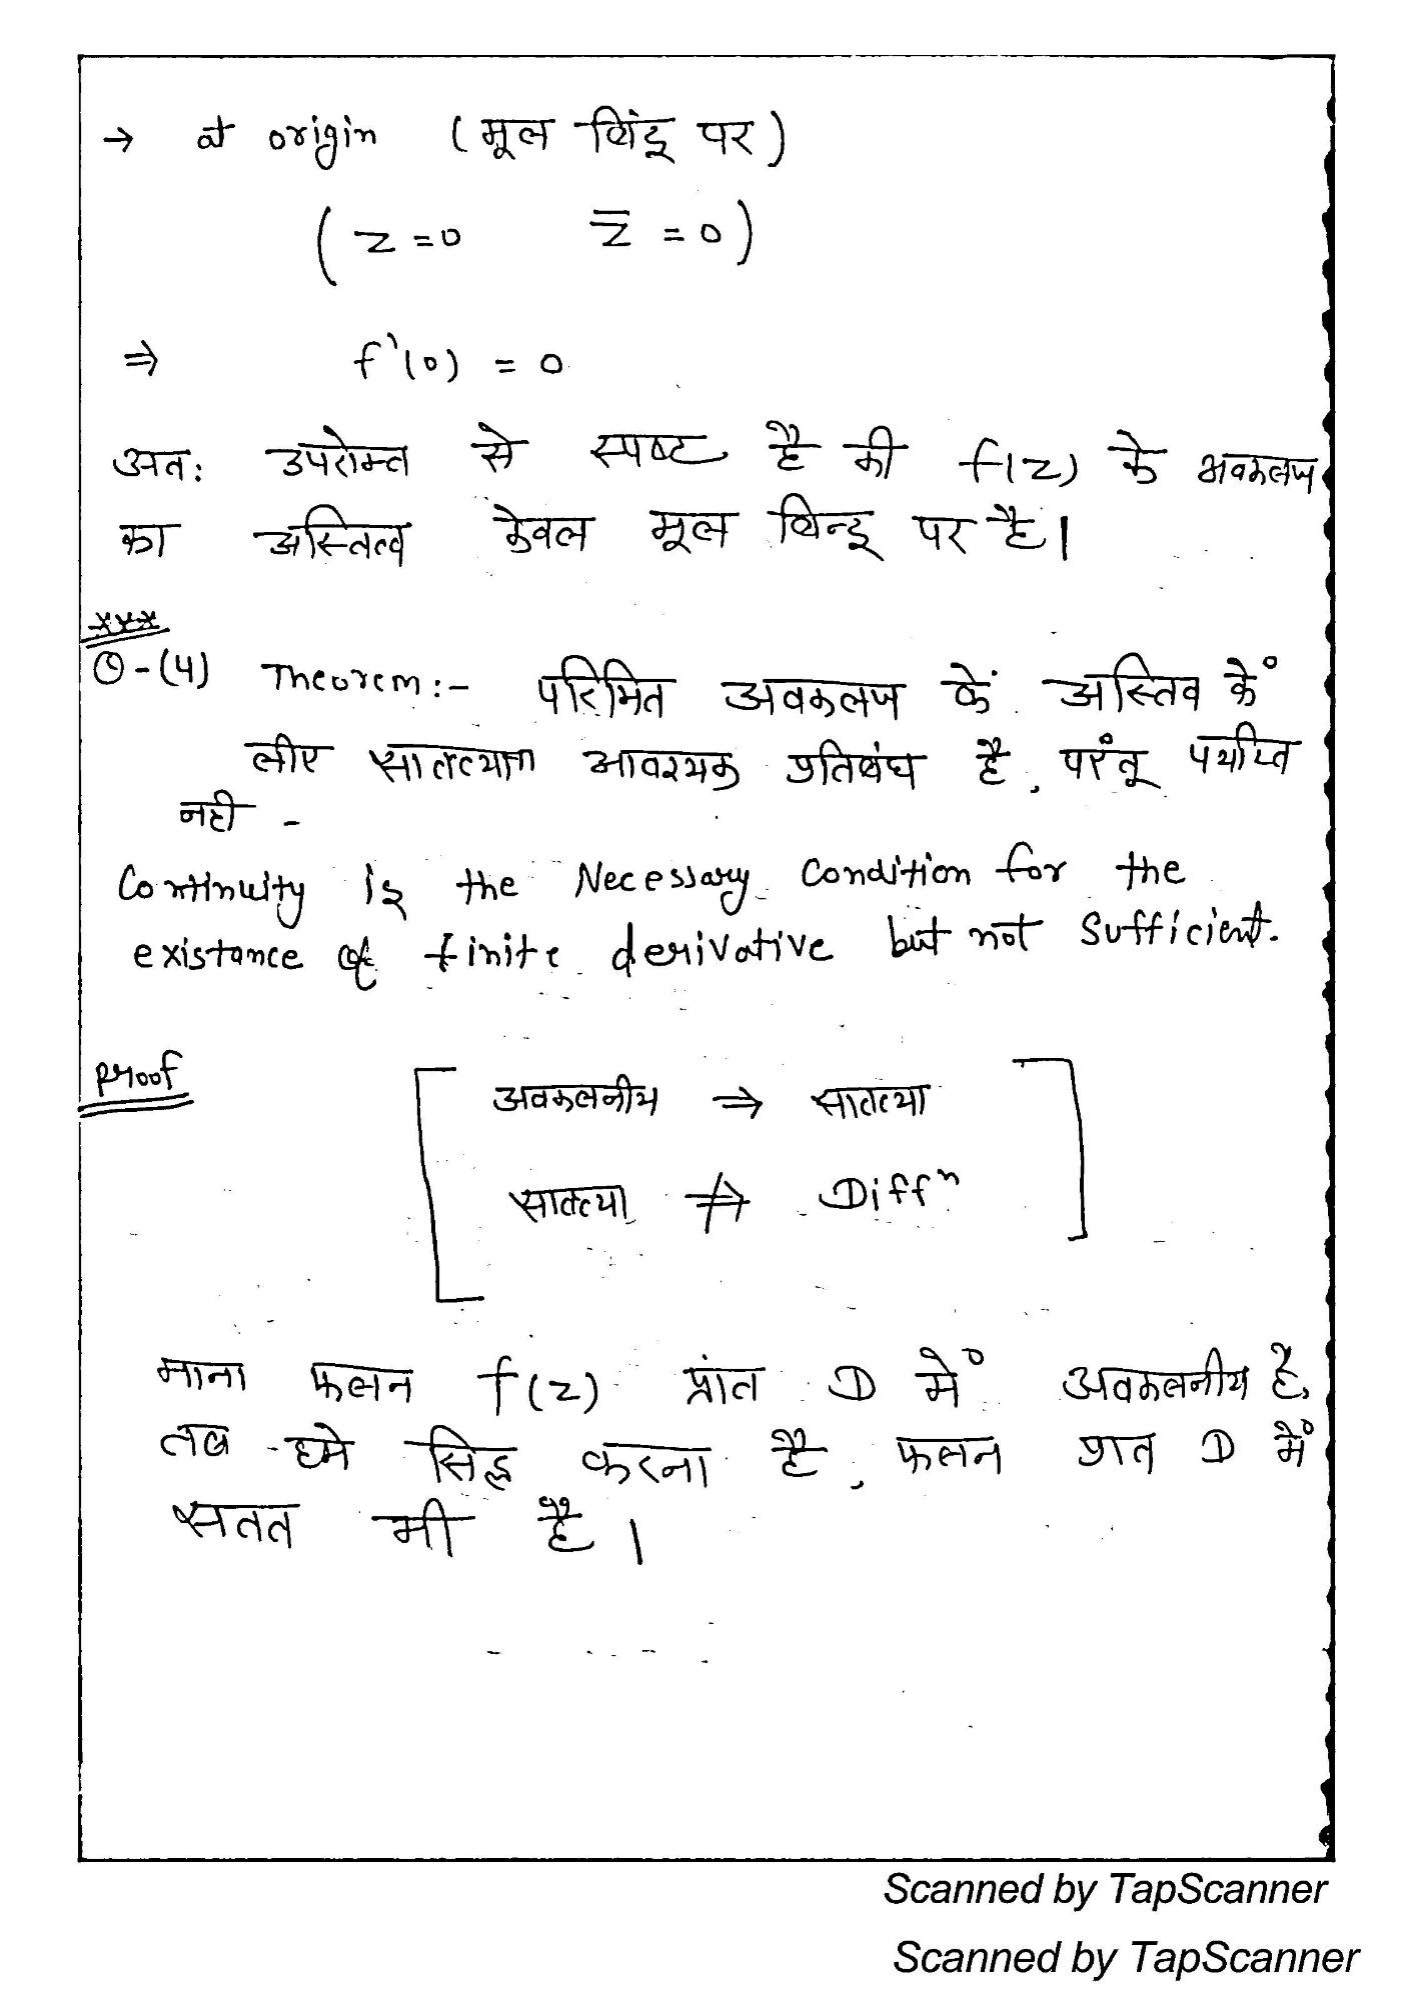 → at origin (मूल बिंदु पर)
( z = 0   z̅ = 0 )
⇒ f'(0) = 0
अतः उपरोक्त से स्पष्ट है की f(z) के अवकलज
का अस्तित्व केवल मूल बिन्दु पर है।
***
Q-(4) Theorem:- परिमित अवकलज कें अस्तिव कें
लीए सातत्यता आवश्यक प्रतिबंध है, परंतू पर्याप्त
नही -
Continuity is the Necessary Condition for the
existance of finite derivative but not Sufficient.
Proof
[ अवकलनीय ⇒ सातत्या ]
सातत्या ⇏ Diffⁿ
माना फलन f(z) प्रांत D में अवकलनीय है,
तब हमे सिद्ध करना है, फलन प्रात D में
सतत भी है।
Scanned by TapScanner
Scanned by TapScanner